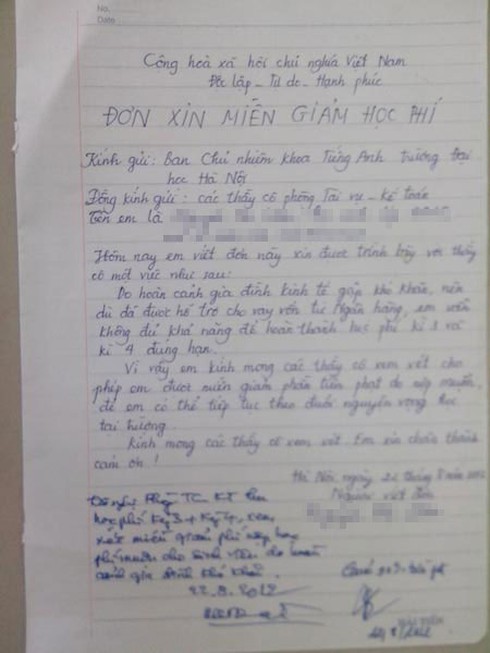 No.
Date
Cộng hoà xã hội chủ nghĩa Việt Nam
Độc lập - Tự do - Hạnh phúc
ĐƠN XIN MIỄN GIẢM HỌC PHÍ
Kính gửi: Ban Chủ nhiệm khoa Tiếng Anh trường Đại
học Hà Nội
Đồng kính gửi: các thầy cô phòng Tài vụ - Kế toán
Tên em là
Hôm nay em viết đơn này xin được trình bày với thầy
cô một việc như sau:
Do hoàn cảnh gia đình kinh tế gặp khó khăn, nên
dù đã được hỗ trợ cho vay vốn từ Ngân hàng, em vẫn
không đủ khả năng để hoàn thành học phí kì 3 và
kì 4 đúng hạn.
Vì vậy em kính mong các thầy cô xem xét cho
phép em được miễn giảm phần tiền phạt do nộp muộn,
để em có thể tiếp tục theo đuổi nguyện vọng học
tại trường.
Kính mong các thầy cô xem xét. Em xin chân thành
cảm ơn!
Hà Nội, ngày tháng 8 năm
Người viết đơn
Đề nghị Phòng TC KT thu
học phí Kỳ 3 + Kỳ 4, xem
xét miễn giảm phí nộp học
phí muộn cho sinh viên do hoàn
cảnh gia đình khó khăn.
22.8.2012